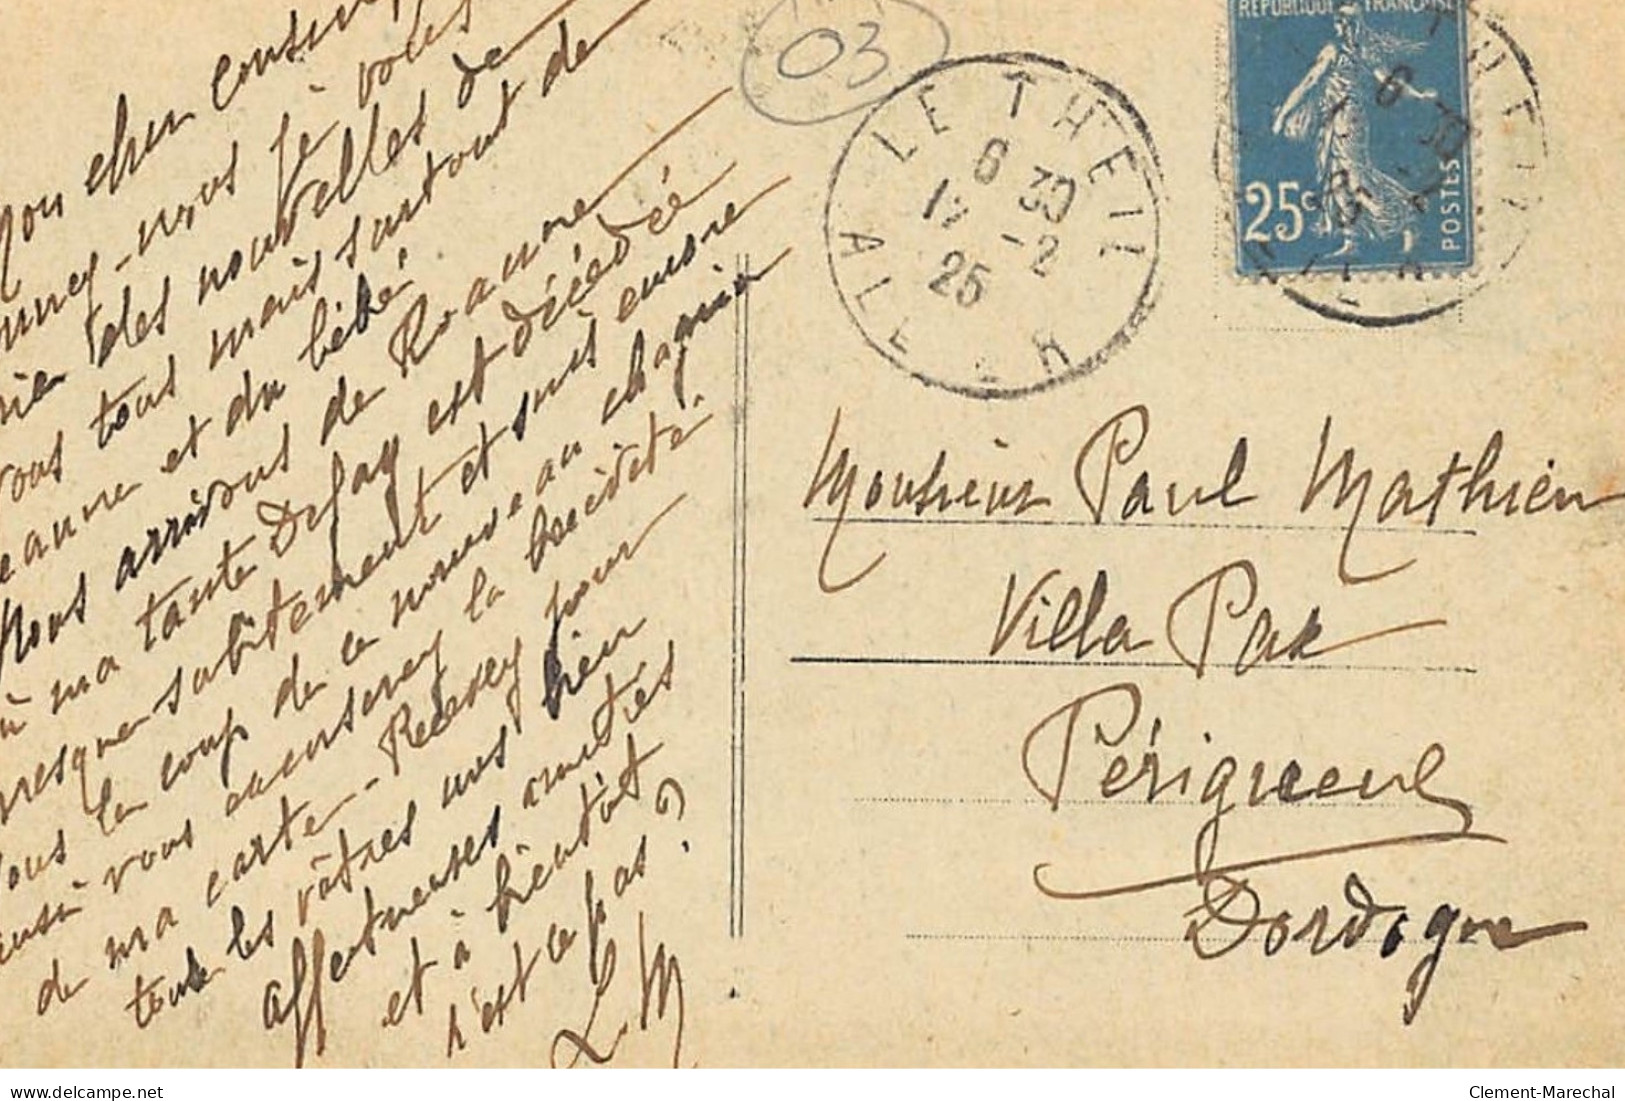 Mon cher cousin
nous je vous
des nouvelles de
vous tous mais surtout de
Jeanne et du bébé
Nous arrivons de Roanne
où ma tante Defay est décédée
presque subitement et suis encore
sous le coup de ce nouveau chagrin
aussi vous excuserez la brièveté
de ma carte - Recevez pour
tous les vôtres nos bien
affectueuses amitiés
et à bientôt
n'est ce pas ?
L. M
03
LE THEIL
ALLIER
6 30
12 -2
25
REPUBLIQUE FRANÇAISE
25c
POSTES
6 30
Monsieur Paul Mathieu
Villa Pax
Périgueux
Dordogne
delcampe.net
Clement-Marechal